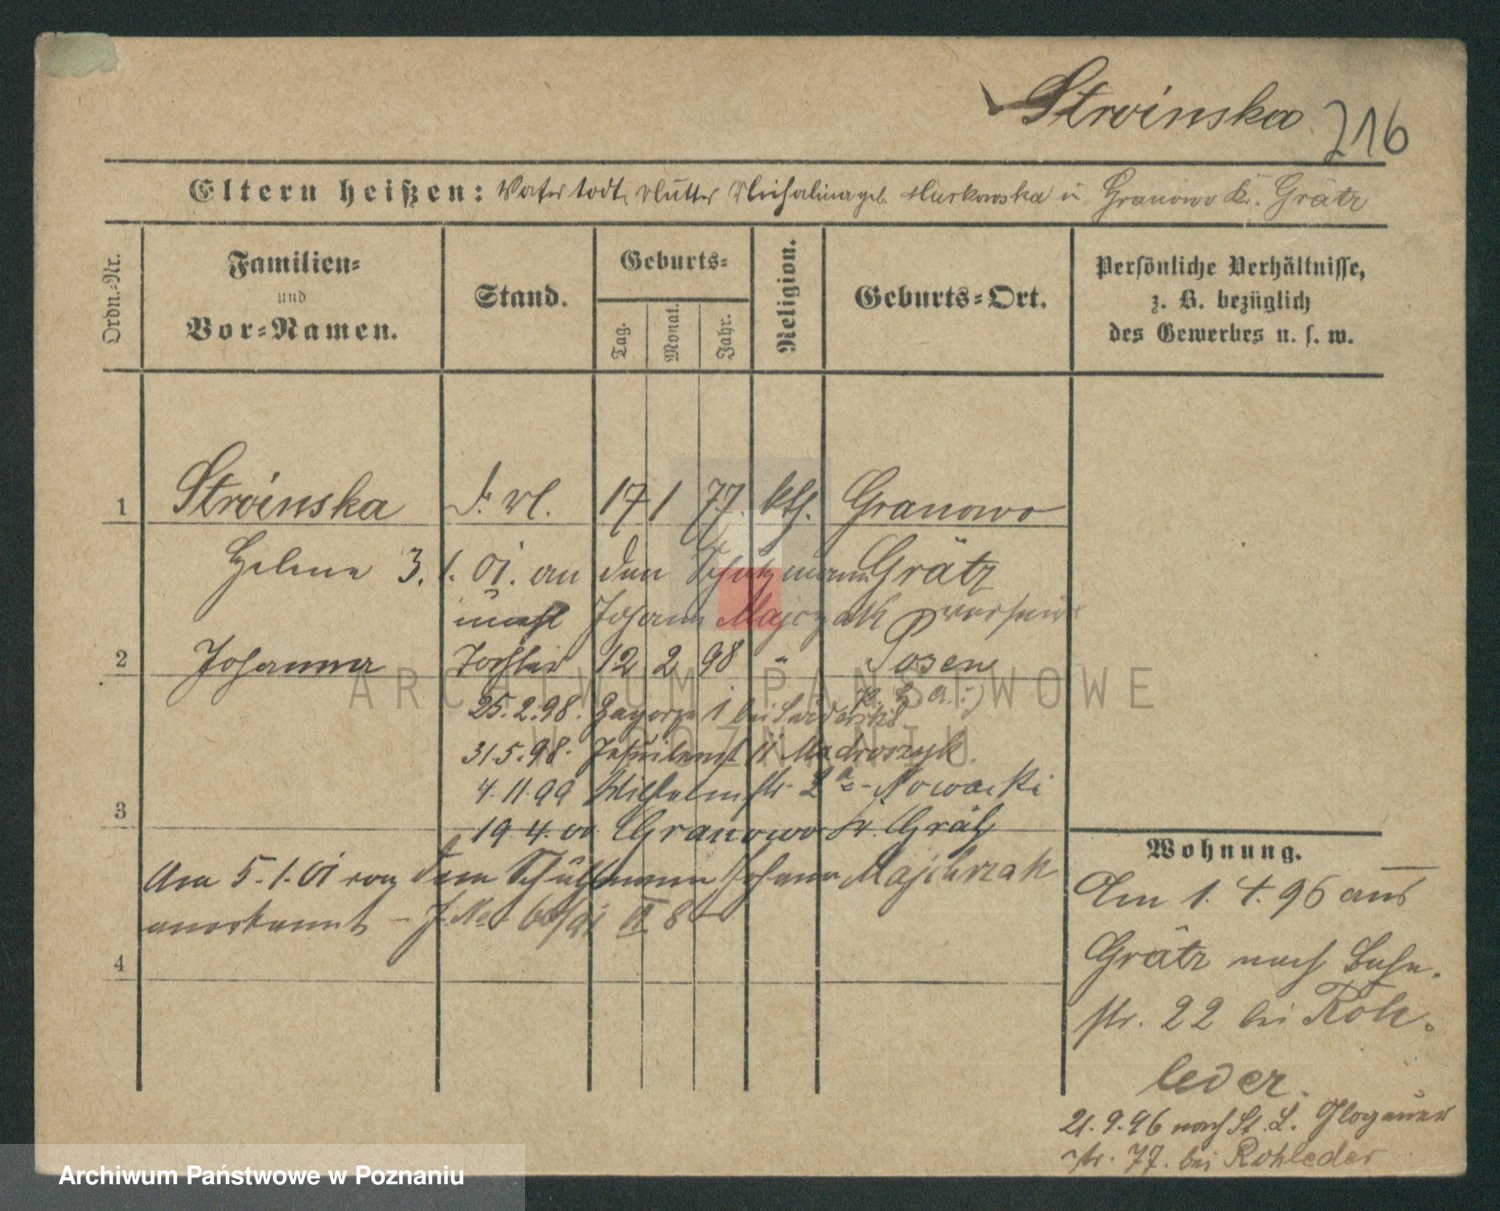 Stroinska 716
Eltern heißen: Vater todt, Mutter Michalina geb. Murkowska in Granowo Kr. Grätz
Ordn.-Nr. Familien- und Vor-Namen. Stand. Geburts- Tag. Monat. Jahr. Religion. Geburts-Ort. Persönliche Verhältnisse, z. B. bezüglich des Gewerbes u. s. w.
1 Stroinska 17 1 77. kth. Granowo
Helene 3. 1. 01. an den Schutzmann Grätz
Johann Majczak
2 Johanna Tochter 12 2 98 " Posen
25. 2. 98. Zagorze 1 bei
31. 5. 98. Jesuitenst 11 Madroszyk.
3 4. 11. 99 Wilhelmstr. 2a - Nowacki
19 4. 00 Granowo Kr. Grätz
Am 5. 1. 01 von dem Schutzmann Johann Majchrzak
anerkannt - J. No.
4
Wohnung.
Am 1. 4. 96 aus
Grätz nach Bahn-
str. 22 bei Roh-
leder.
21. 9. 96 nach St. L. Glogauer
str. 77. bei Rohleder
ARCHIWUM PAŃSTWOWE
W POZNANIU
Archiwum Państwowe w Poznaniu